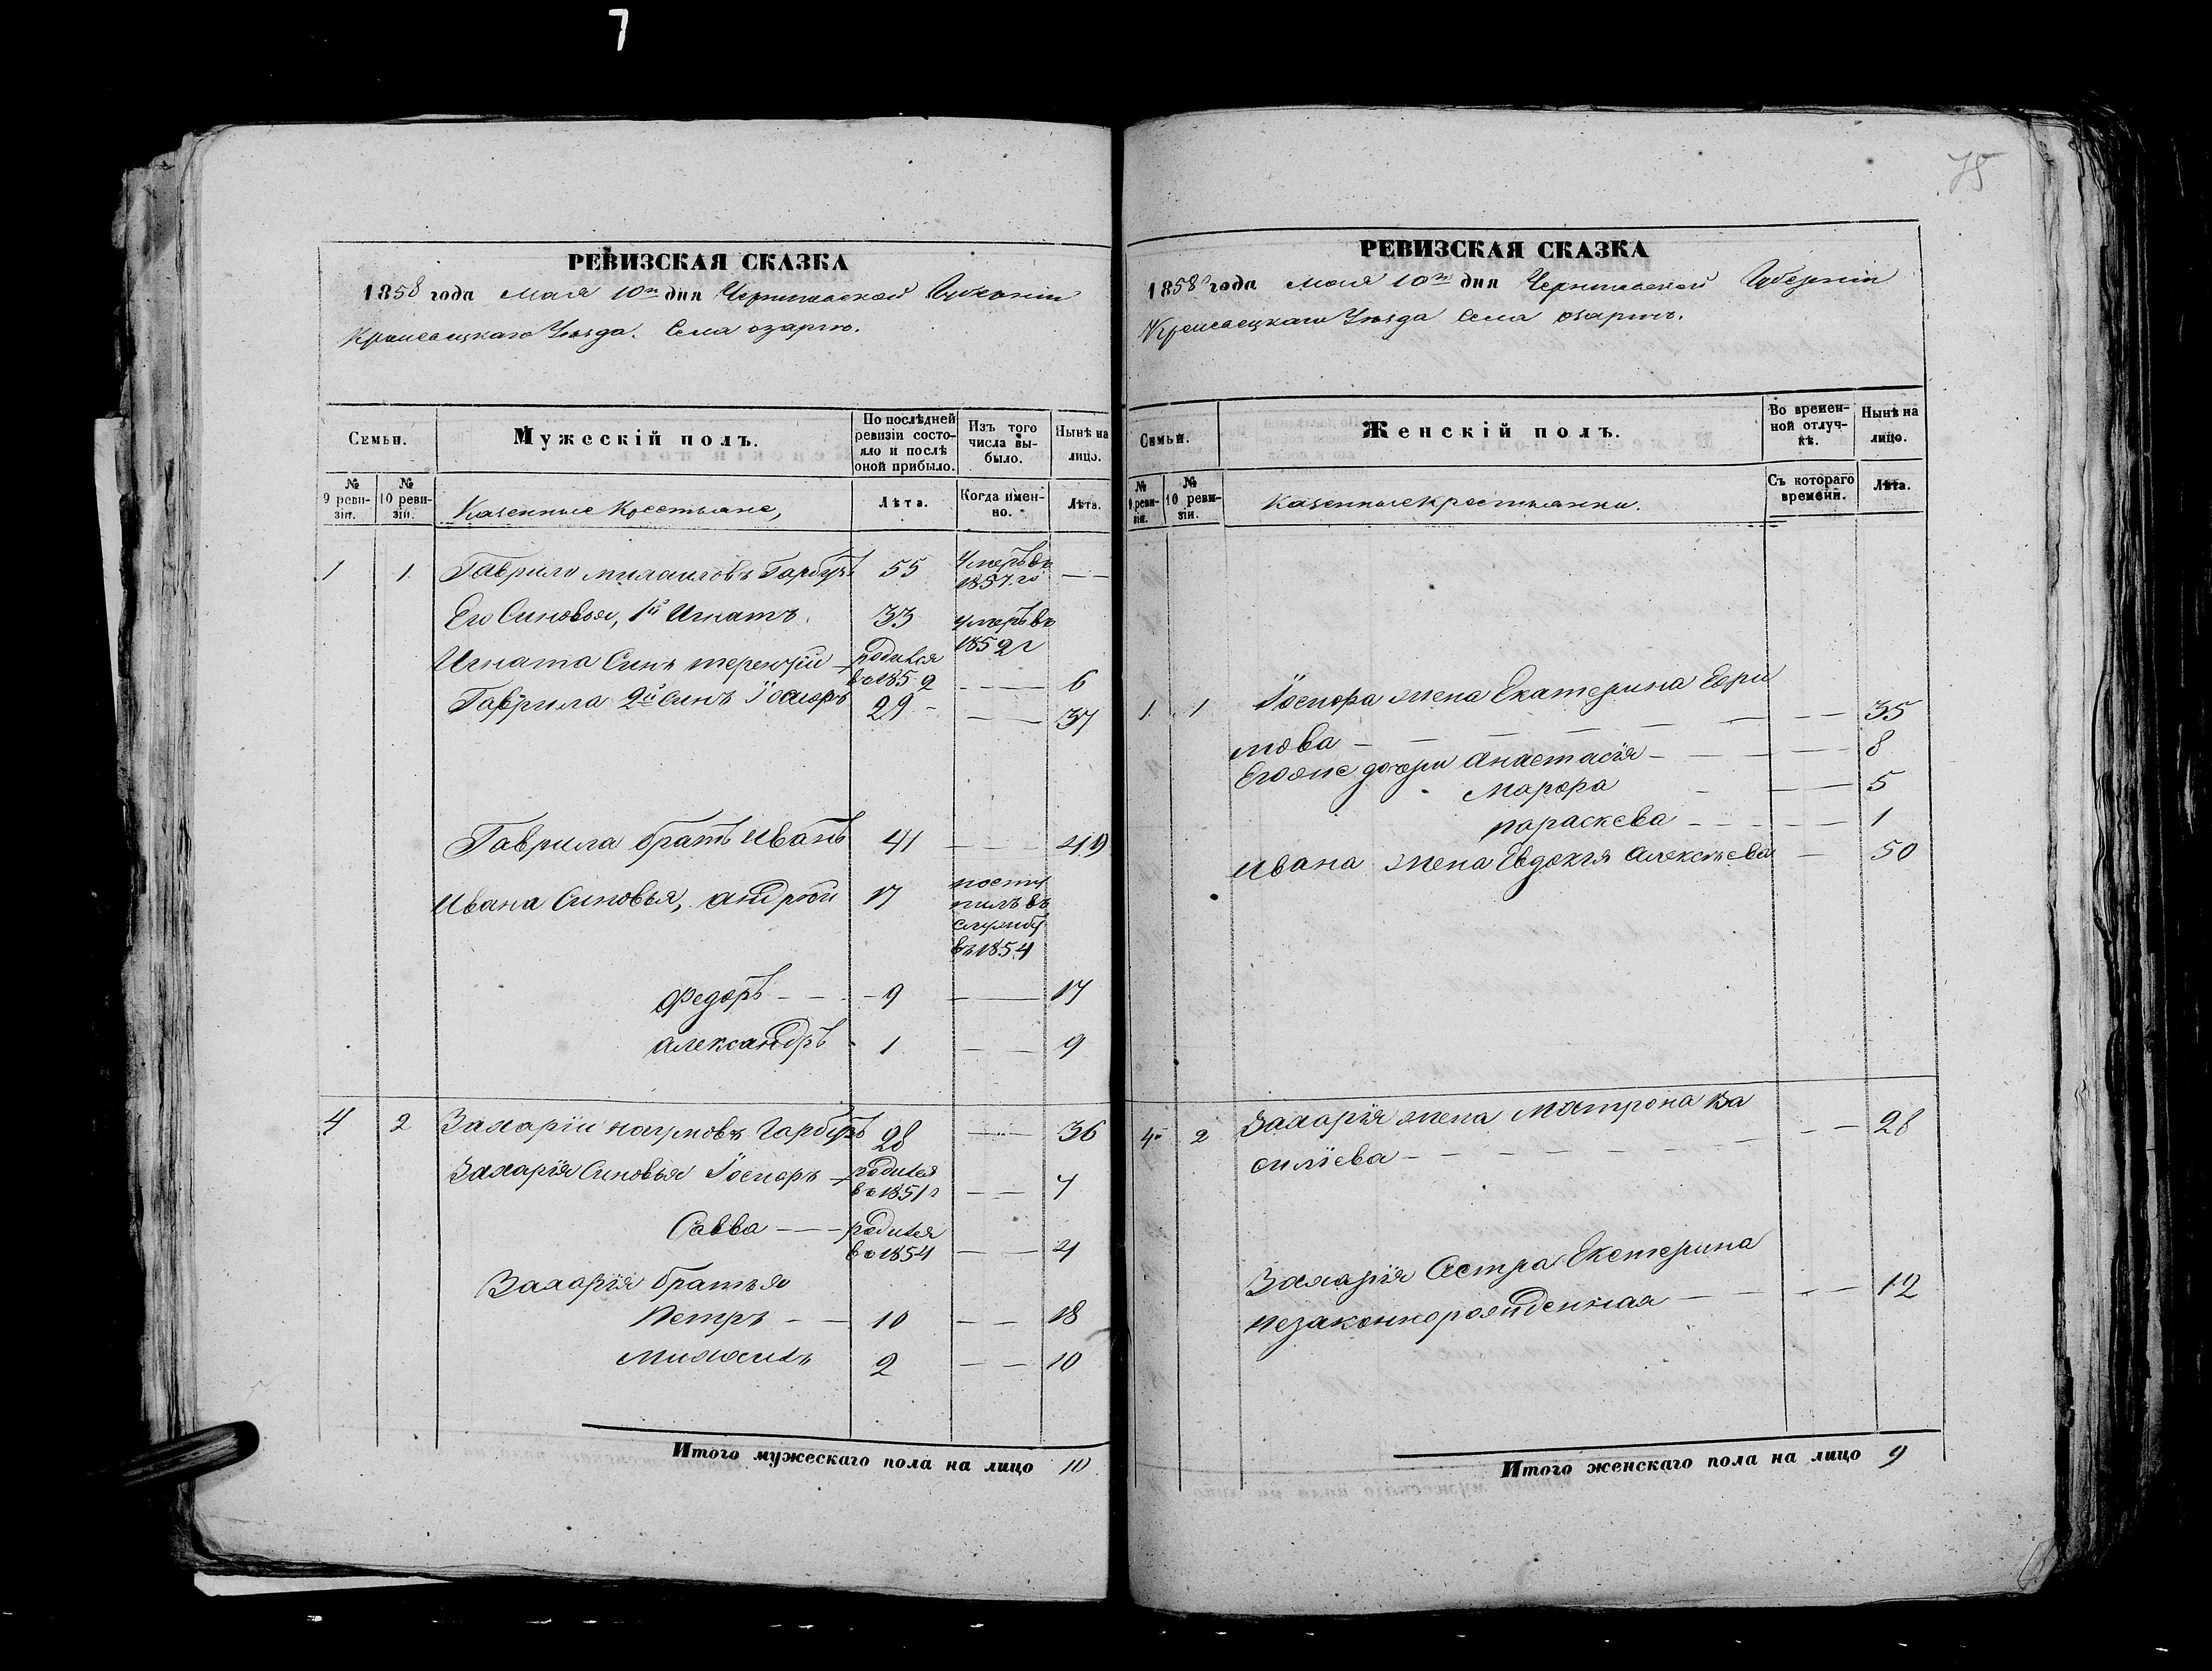 7
РЕВИЗСКАЯ СКАЗКА
1858 года Мая 10го дня Черниговской Губерніи
Кролевецкаго Уезда. Села озарич.
Семьи.
Мужескій полъ.
По послѣдней ревизіи состо-
яло и послѣ
оной прибыло.
Изъ того
числа вы-
было.
Нынѣ на
лицо.
№
9 реви-
зіи.
№
10 реви-
зіи.
Казенные Крестьяне,
Лѣта.
Когда имен-
но.
Лѣта.
1 1 Гаврило михаиловъ Гарбузъ 55 Умеръ въ 1857 го — —
Его Синовья, 1й Игнатъ. 33 умеръ въ 1852 г
Игната Синъ терентій — родился во 1852 — — 6
Гаврила 2й Синъ Іосифъ 29 — — — 37
Гаврила братъ Иванъ 41 — — 49
Ивана Синовья, андрей 17 посту
пилъ въ
службу
въ 1854
Федоръ — — 9 — 17
александръ 1 — — 9
4 2 Захарій наумовъ Гарбузъ 28 — — 36
Захарія Синовья Іосифъ — родился во 1851 г — — 7
Савва — — родился во 1854 — — 4
Захарія братья
Петръ — — 10 — — 18
Михаилъ 2 — — 10
Итого мужескаго пола на лицо 10
75
РЕВИЗСКАЯ СКАЗКА
1858 года мая 10го дня Черниговской Губерніи
Кролевецкаго Уезда Села озаричъ.
Семьи.
Женскій полъ.
Во времен-
ной отлуч-
кѣ.
Нынѣ на
лицо.
№
9 реви-
зіи.
№
10 реви-
зіи.
Казенные крестьянки.
Съ котораго
времени.
Лѣта.
1 1 Іосифа жена Екатерина Ефи
мова — — — — — — — 35
Его же дочери анастасія — — — — 8
Марфа — — — 5
параскева — — — — — 1
Ивана жена Евдокія алексѣева — 50
4 2 Захарія жена Матрона Ва
силіева — — — — — — — — 28
Захарія Сестра Екатерина
незаконнорожденная — — — — 12
Итого женскаго пола на лицо 9